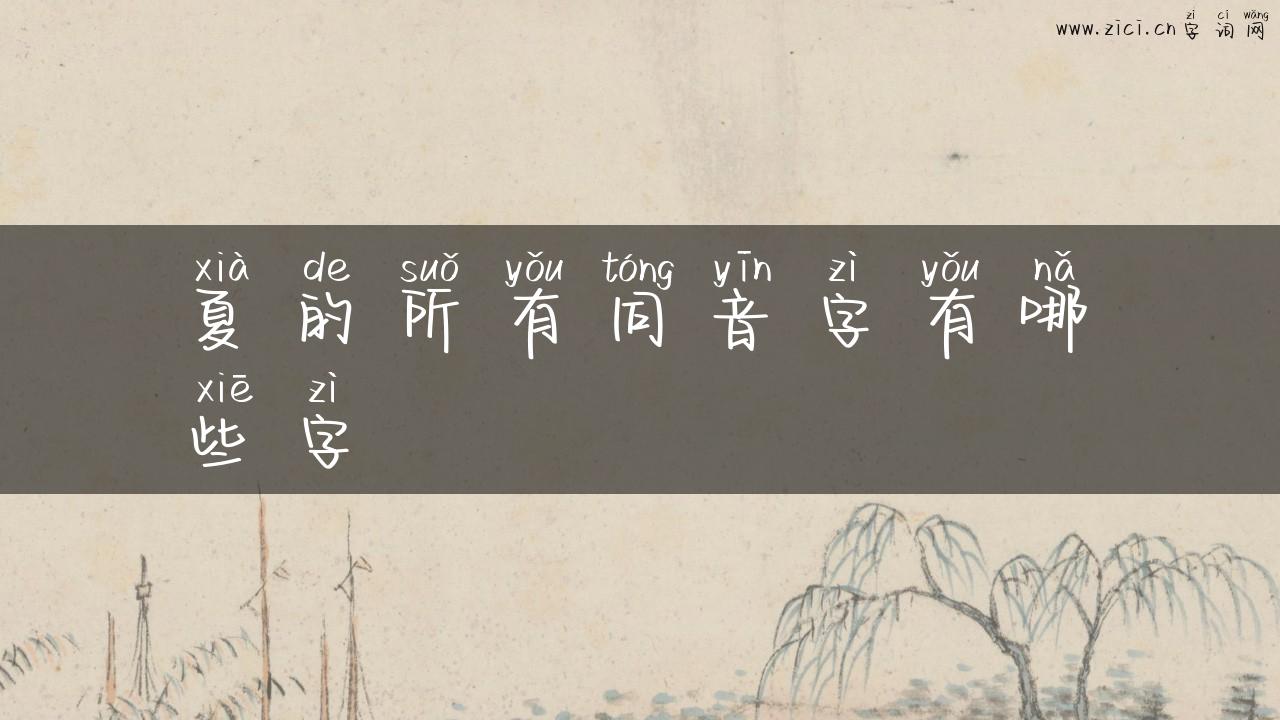 zì cí wǎng
www.zici.cn 字词网
xià de suǒ yǒu tóng yīn zì yǒu nǎ
夏的所有同音字有哪
xiē zì
些字